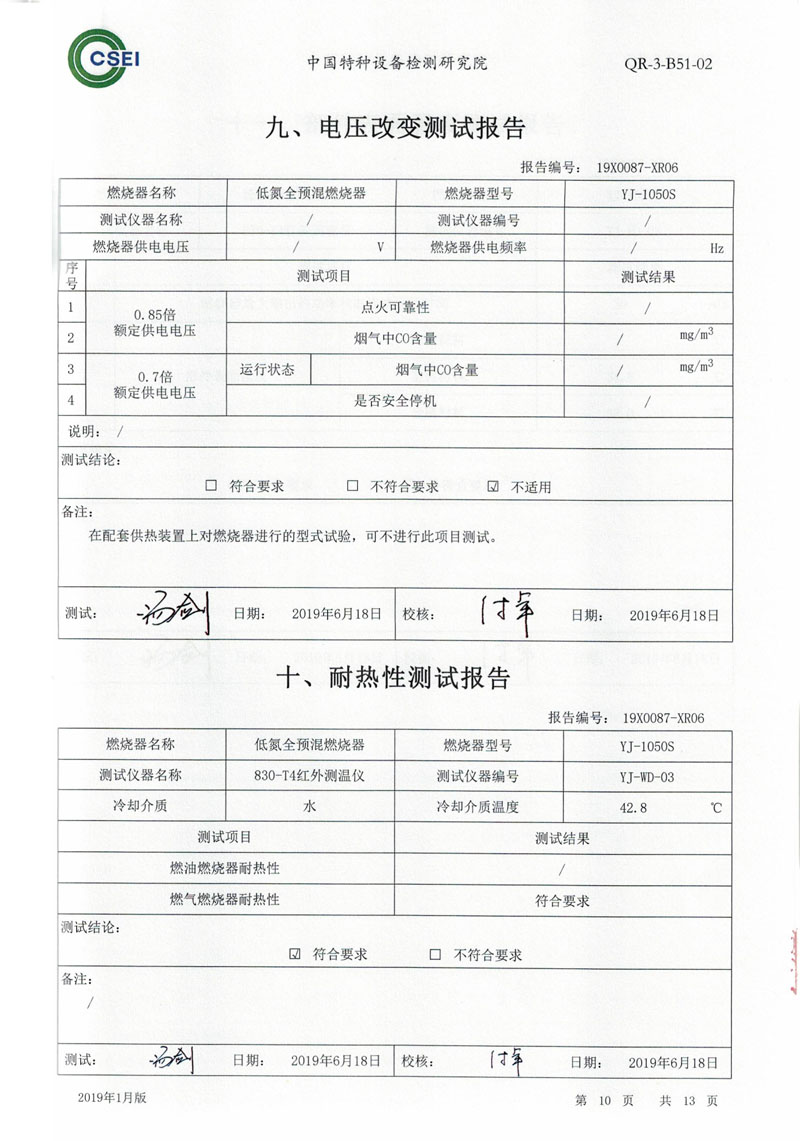 CSEI 中国特种设备检测研究院 QR-3-B51-02
九、电压改变测试报告
报告编号： 19X0087-XR06
燃烧器名称 低氮全预混燃烧器 燃烧器型号 YJ-1050S
测试仪器名称 / 测试仪器编号 /
燃烧器供电电压 / V 燃烧器供电频率 / Hz
序号 测试项目 测试结果
1 0.85倍额定供电电压 点火可靠性 /
2 烟气中CO含量 / mg/m³
3 0.7倍额定供电电压 运行状态 烟气中CO含量 / mg/m³
4 是否安全停机 /
说明： /
测试结论：
☐ 符合要求 ☐ 不符合要求 ☑ 不适用
备注：
在配套供热装置上对燃烧器进行的型式试验，可不进行此项目测试。
测试： 日期： 2019年6月18日 校核： 日期： 2019年6月18日
十、耐热性测试报告
报告编号： 19X0087-XR06
燃烧器名称 低氮全预混燃烧器 燃烧器型号 YJ-1050S
测试仪器名称 830-T4红外测温仪 测试仪器编号 YJ-WD-03
冷却介质 水 冷却介质温度 42.8 ℃
测试项目 测试结果
燃油燃烧器耐热性 /
燃气燃烧器耐热性 符合要求
测试结论：
☑ 符合要求 ☐ 不符合要求
备注：
/
测试： 日期： 2019年6月18日 校核： 日期： 2019年6月18日
2019年1月版 第 10 页 共 13 页